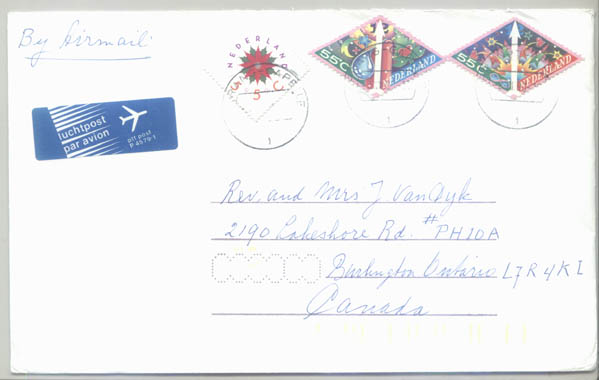 By Airmail
NEDERLAND
35 C
55C
NEDERLAND
55C
NEDERLAND
luchtpost
par avion
ptt post
P 4579-1
1
1
1
Rev. and Mrs J VanDyk
2190 Lakeshore Rd. #PH10A
Burlington Ontario L7R4K1
Canada